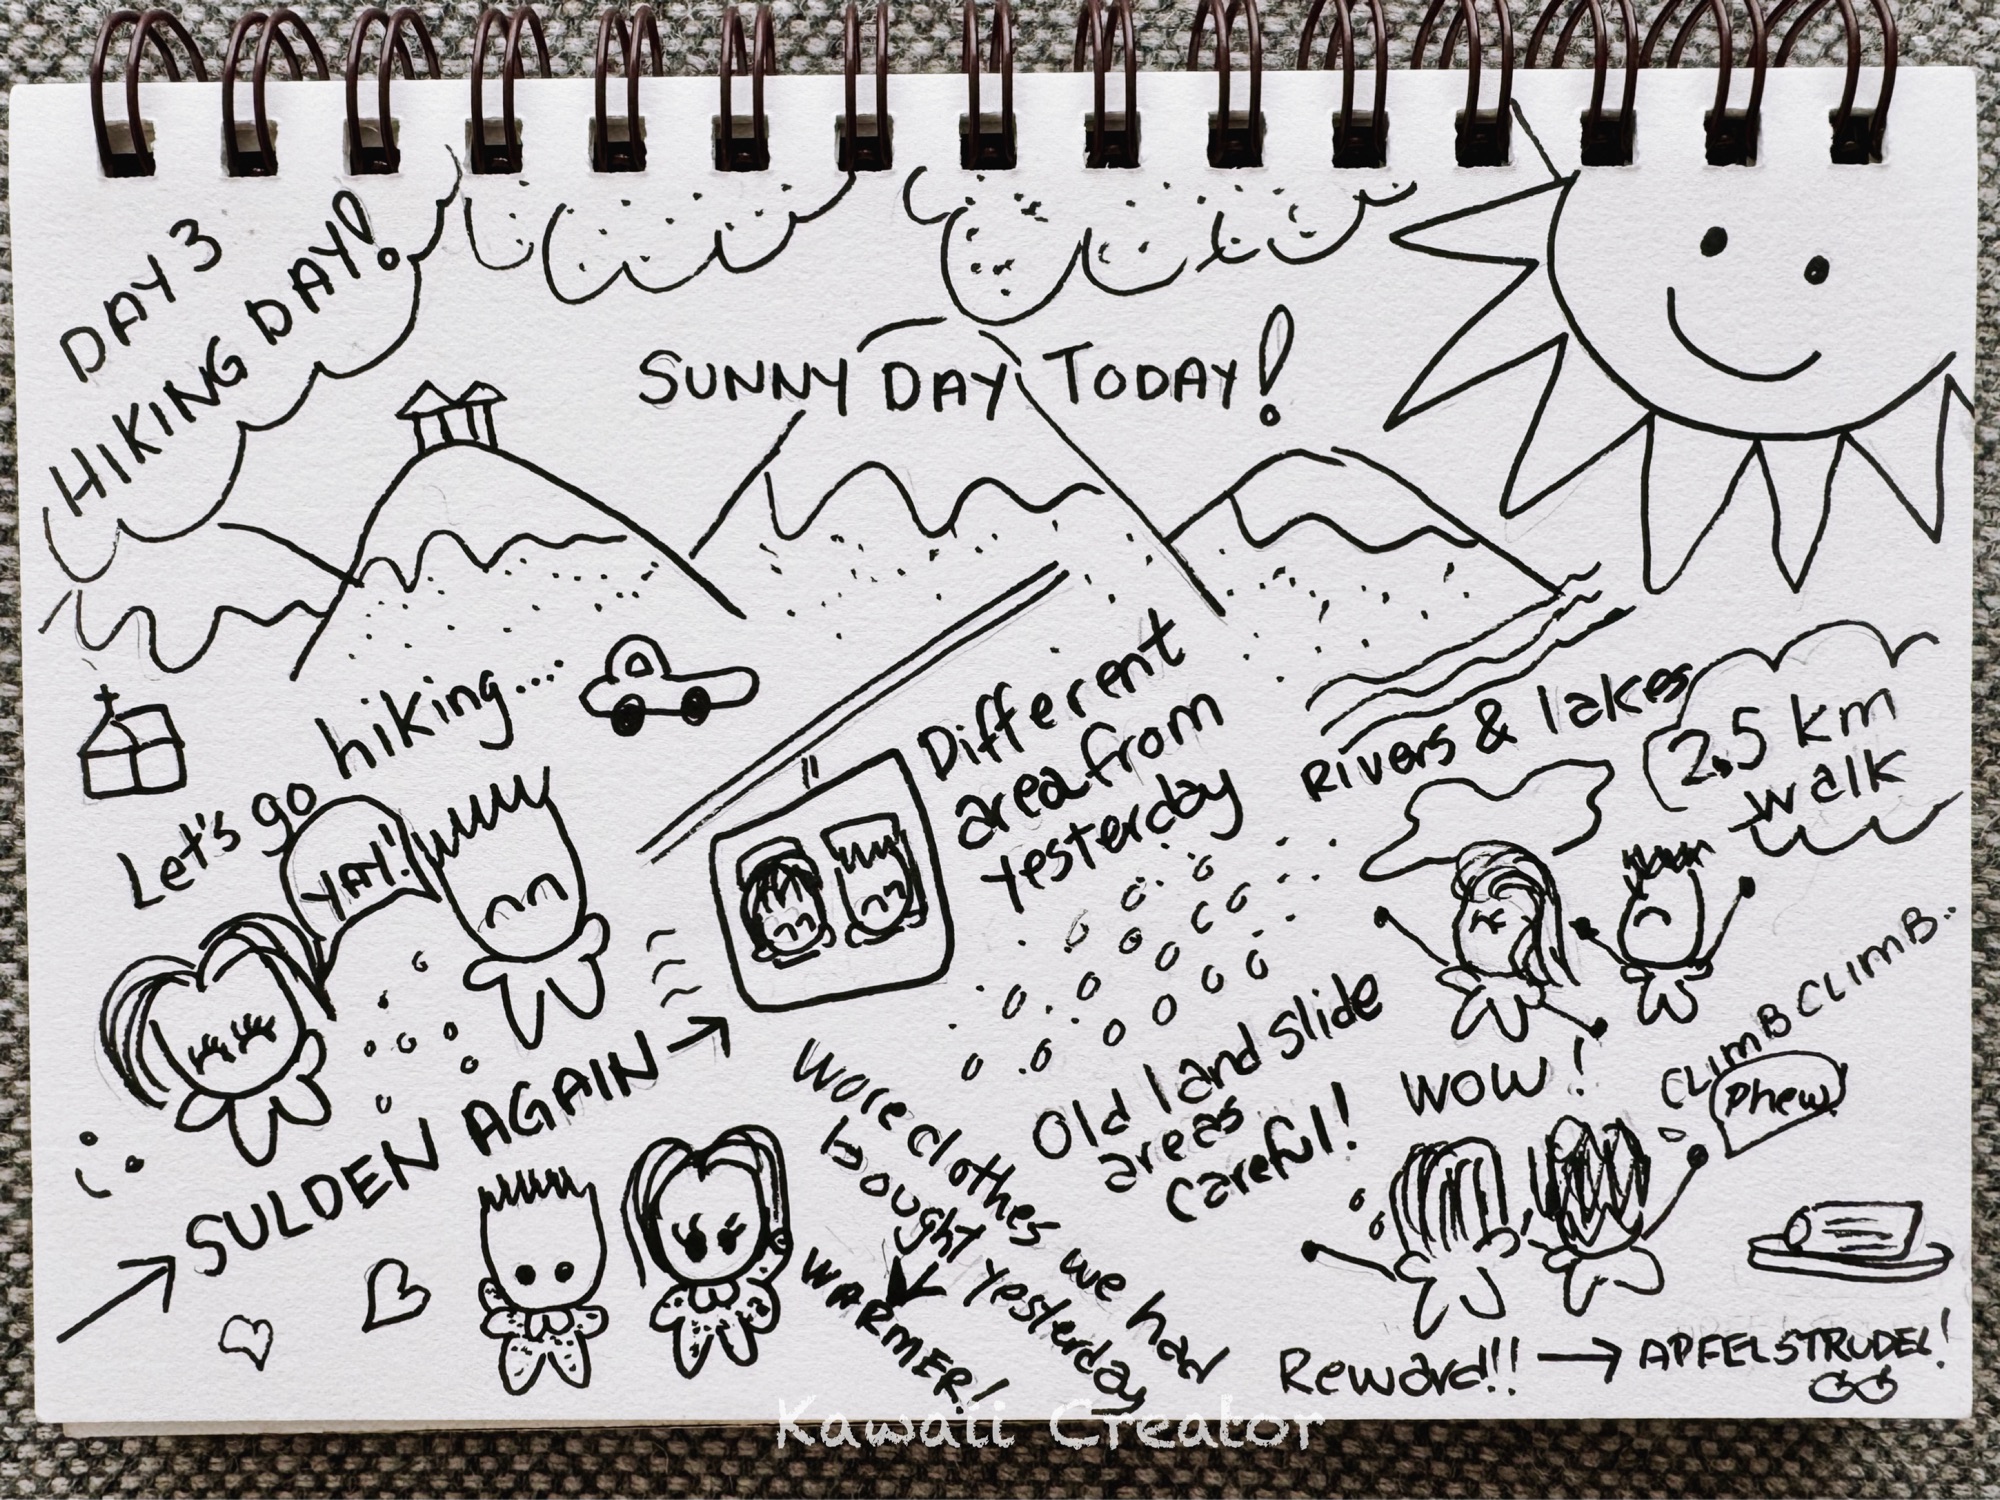 DAY 3
HIKING DAY!
SUNNY DAY TODAY!
Let's go hiking...
YAY!
Different
area from
yesterday
Rivers & lakes
2.5 km
walk
SULDEN AGAIN
Old land slide
areas
careful!
WOW!
CLIMB CLIMB..
Phew!
Wore clothes we had
bought yesterday
WARMER!
Reward!!
APFELSTRUDEL!
Kawaii Creator